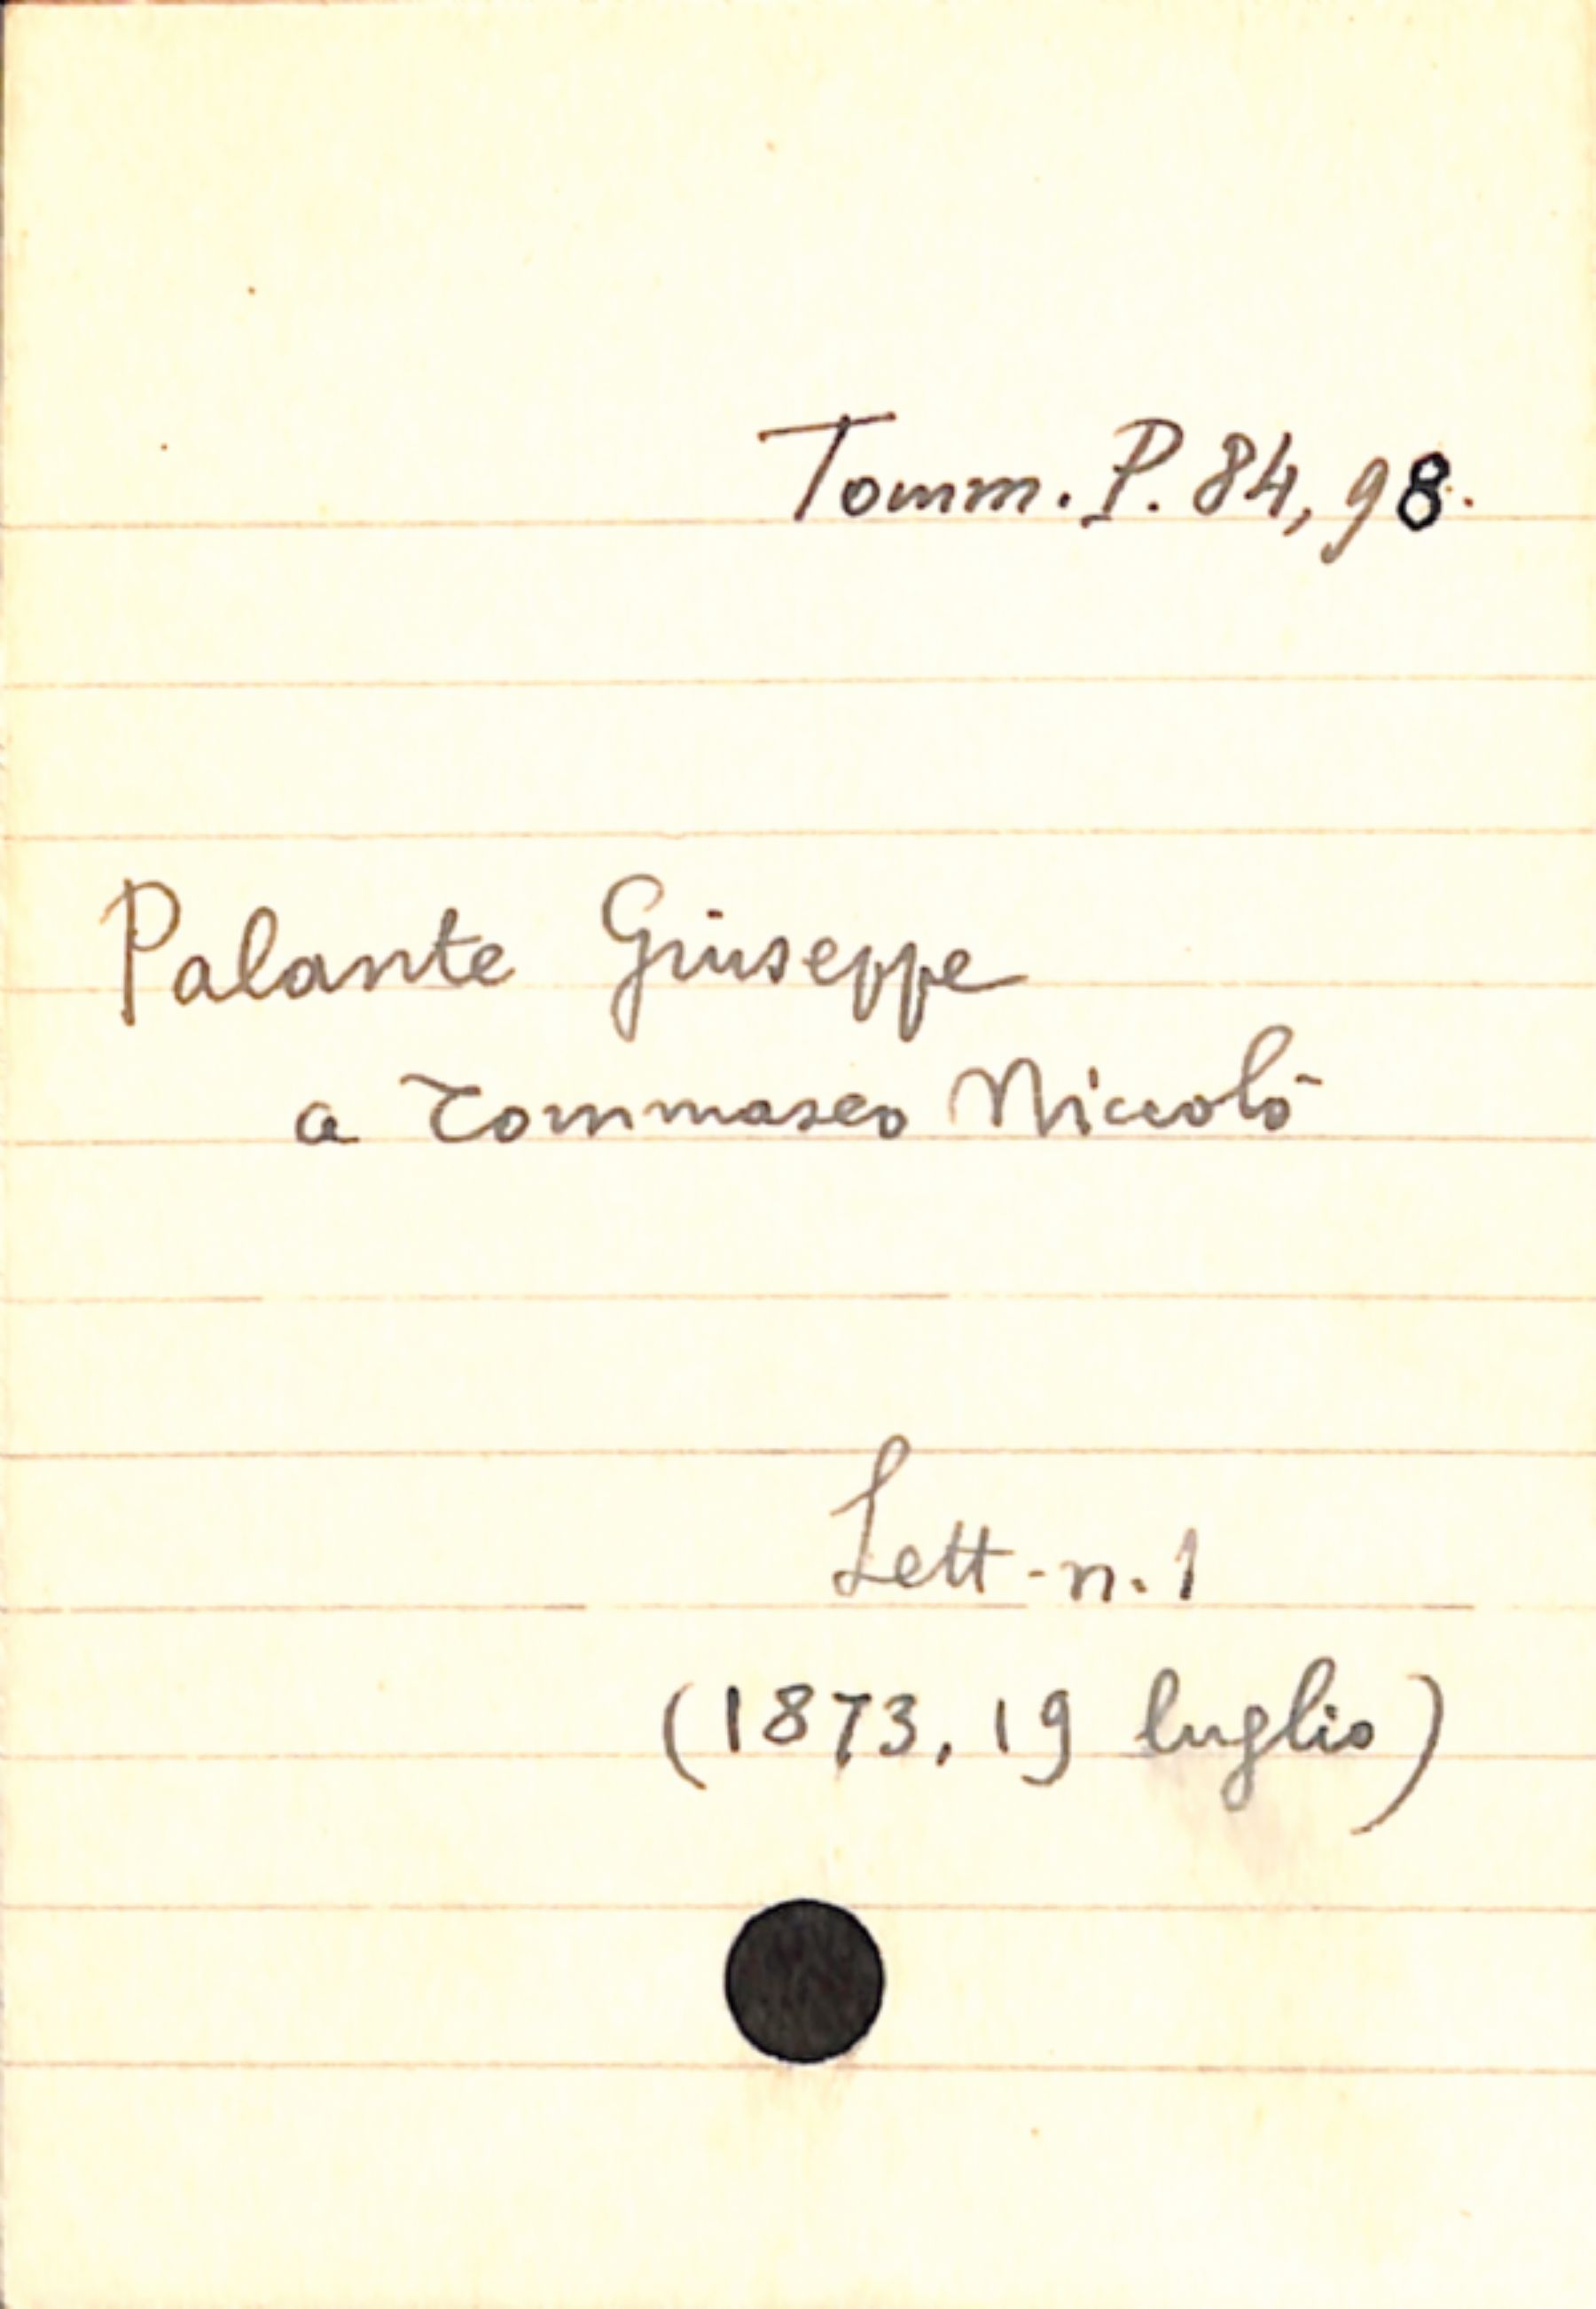 Tomm. P. 84, 98.
Palante Giuseppe
a Tommaseo Niccolò
Lett. n. 1
(1873, 19 luglio)